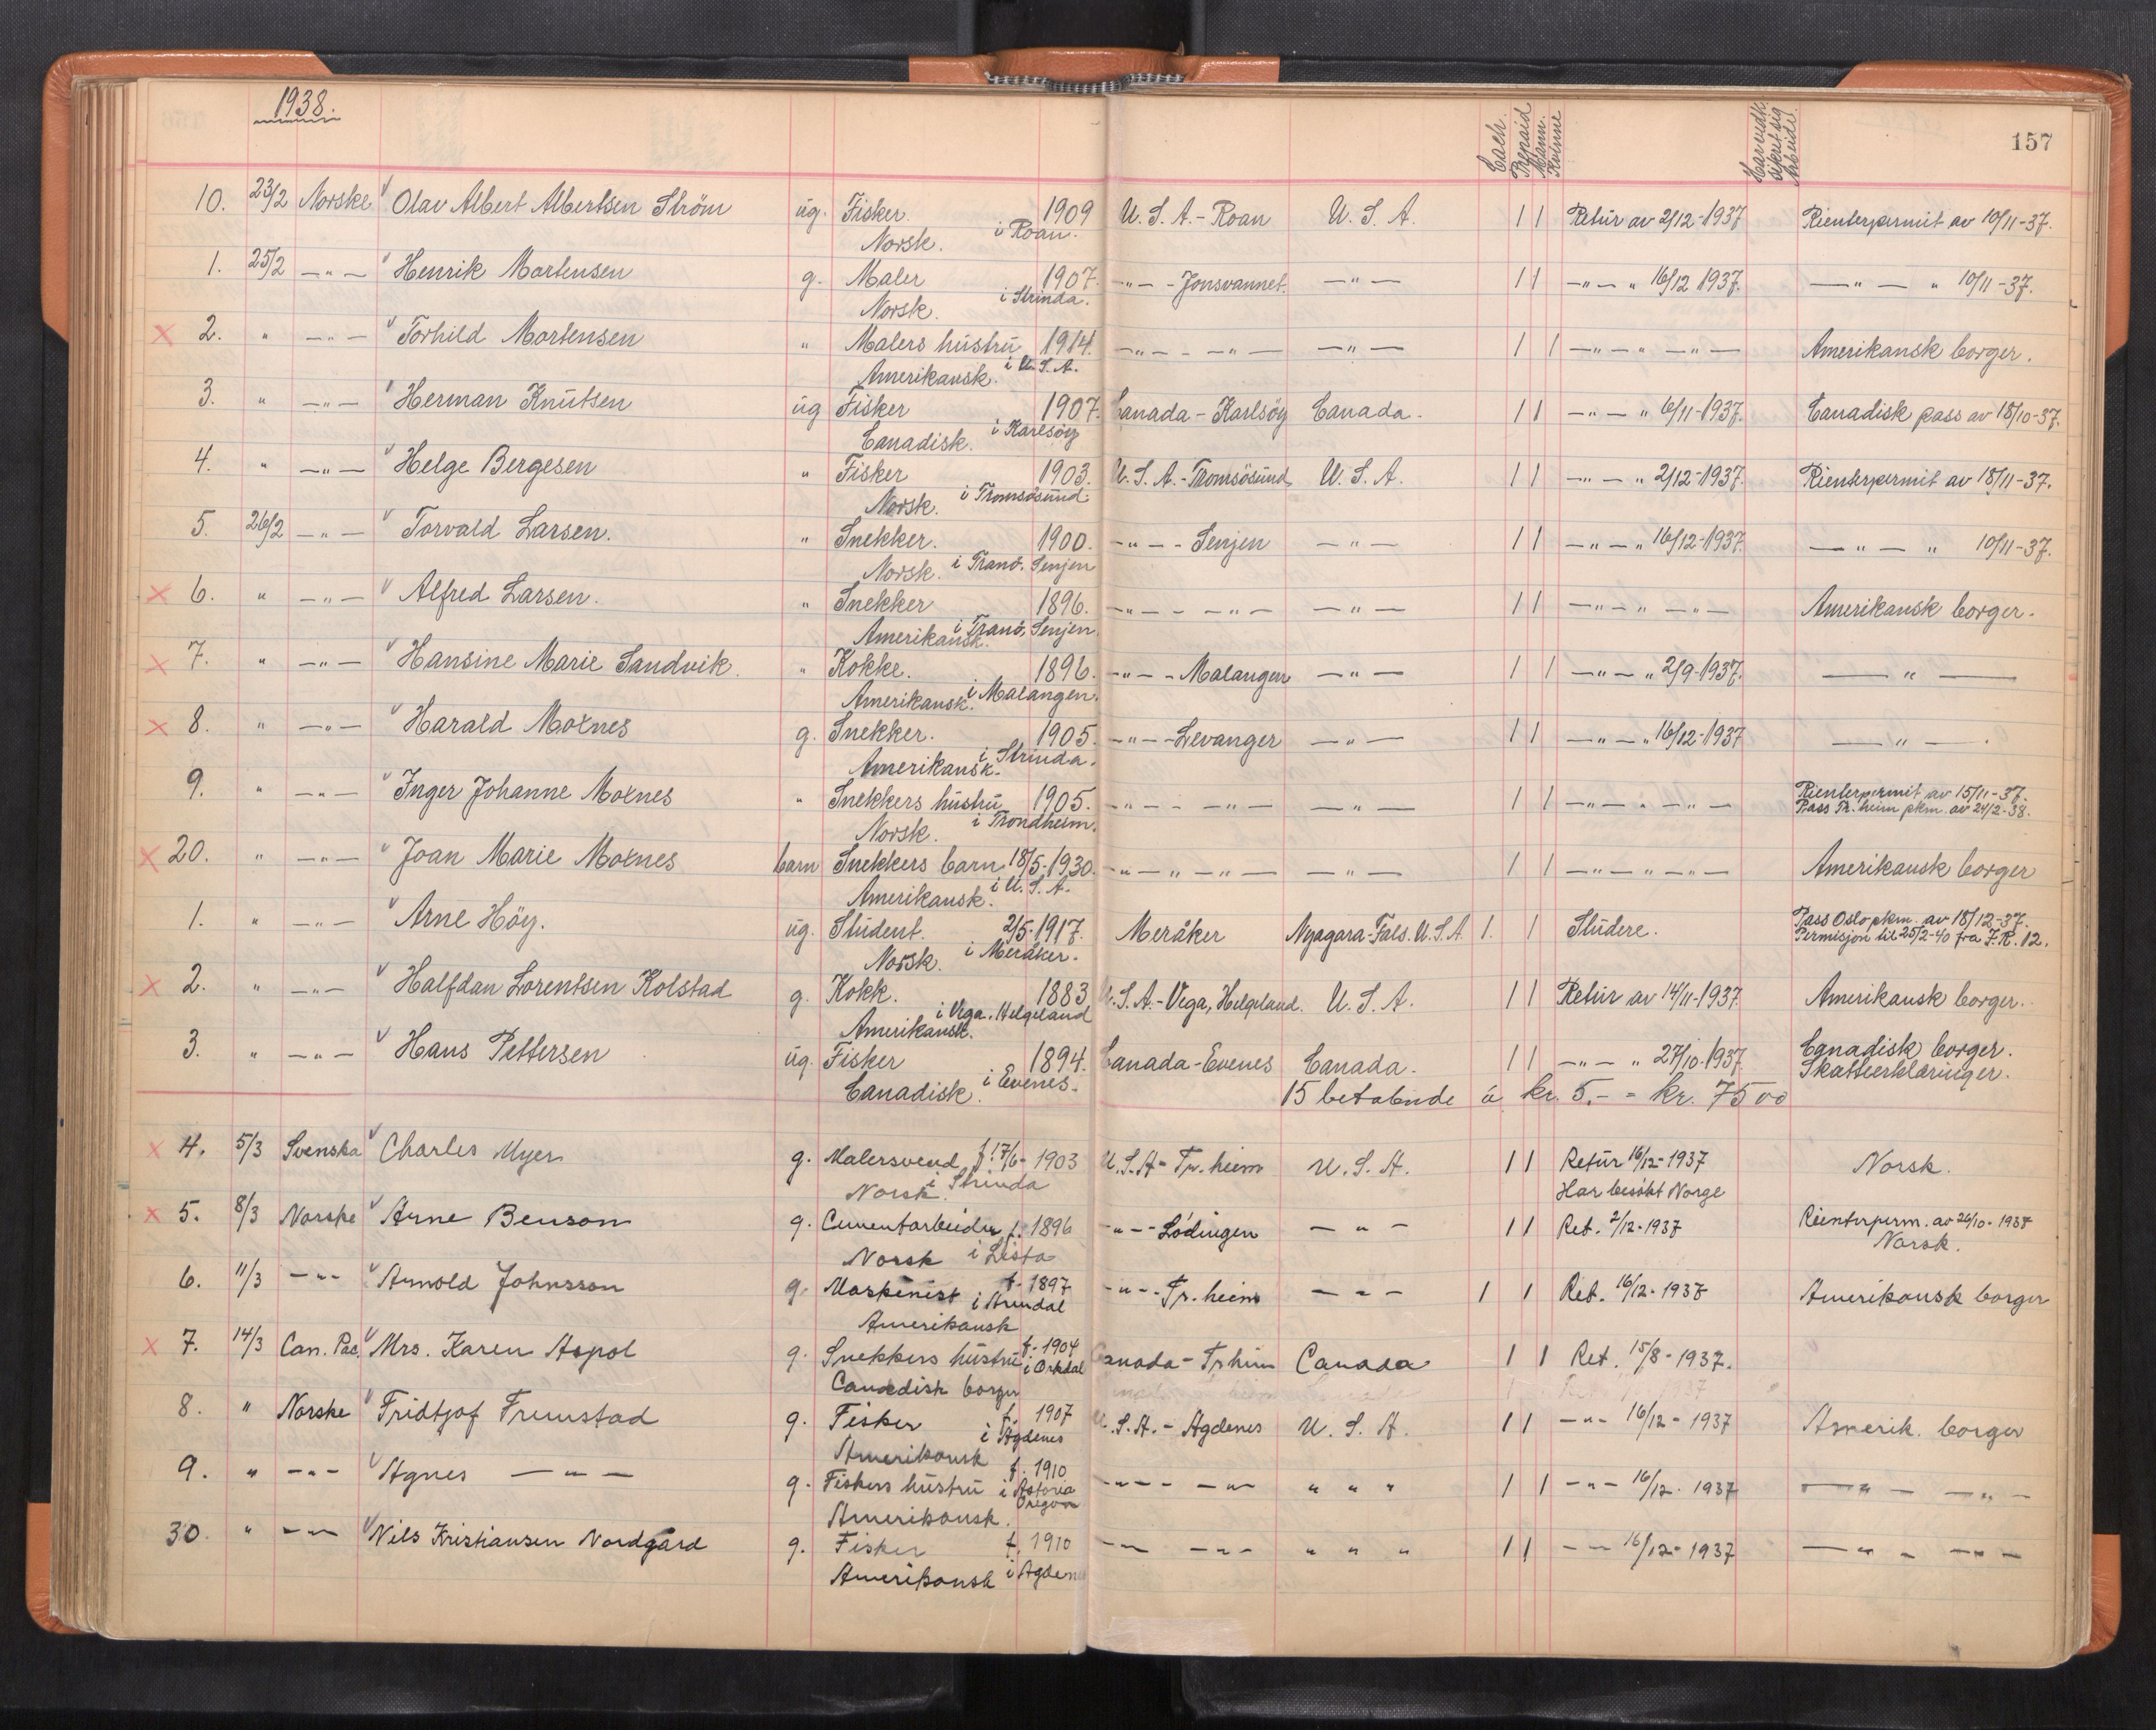 1938.
Cash. Prepaid Mann. Kvinne Har vedk. sikret sig Arbeide. 157
10. 23/2 Norske Olav Albert Albertsen Ström ug. Fisker. 1909 U.S.A. - Roan U.S.A. 1 1 Retur av 2/12-1937 Rienterpermit av 10/11-37.
Norsk. i Roan.
1. 25/2 -"- Henrik Mortensen g. Maler 1907. -"- - Jonsvannet. -"- 1 1 -"- " 16/12 1937. -"- " 10/11-37.
Norsk. i Strinda.
x 2. " -"- Torhild Mortensen " Malers hustru 1914. -"- - -"- -"- 1 1 -"- " -"- Amerikansk borger.
Amerikansk. i U.S.A.
3. " -"- Herman Knutsen ug Fisker 1907. Canada - Karlsöy Canada. 1 1 -"- " 6/11-1937. Canadisk pass av 18/10-37.
Canadisk. i Karlsöy
4. " -"- Helge Bergesen " Fisker 1903. U.S.A. - Tromsösund U.S.A. 1 1 -"- " 2/12-1937. Rienterpermit av 18/11-37.
Norsk. i Tromsösund.
5. 26/2 -"- Torvald Larsen. " Snekker. 1900. -"- - Senjen -"- 1 1 -"- " 16/12-1937. -"- " 10/11-37.
Norsk. i Tranö. Senjen
x 6. " -"- Alfred Larsen. " Snekker 1896. -"- - -"- -"- 1 1 -"- " -"- Amerikansk borger.
Amerikansk. i Tranö, Senjen.
x 7. " -"- Hansine Marie Sandvik. " Kokke. 1896. -"- - Malangen -"- 1 1 -"- " 2/9-1937. -"-
Amerikansk. i Malangen.
x 8. " -"- Harald Moxnes g. Snekker. 1905. -"- - Levanger -"- 1 1 -"- " 16/12-1937 -"- .
Amerikansk. i Strinda.
9. " -"- Inger Johanne Moxnes " Snekkers hustru 1905. -"- - -"- -"- 1 1 -"- " -"- Rienterpermit av 15/11-37.
Pass Tr.heim pkm. av 24/2-38.
Norsk. i Trondheim.
x 20. " -"- Joan Marie Moxnes barn Snekkers barn 18/5-1930. -"- " -"- -"- 1 1 -"- " -"- Amerikansk borger
Amerikansk. i U.S.A.
1. " -"- Arne Höy. ug. Student. 2/5-1917. Meråker Nyagara-Fals. U.S.A. 1. 1 Studere. Pass Oslo pkm. av 18/12-37.
Permisjon til 25/2-40 fra I.R. 12.
Norsk. i Meråker.
x 2. " -"- Halfdan Lorentsen Kolstad g. Kokk. 1883 U.S.A. - Vega, Helgeland. U.S.A. 1 1 Retur av 14/11-1937 Amerikansk borger.
Amerikansk. i Vega. Helgeland
3. " -"- Hans Pettersen ug. Fisker 1894. Canada - Evenes Canada. 1 1 -"- " 27/10-1937. Canadisk borger.
Skatteerklæringer.
Canadisk. i Evenes.
15 betalende á kr. 5.- = kr. 75 00
x 4. 5/3 Svenska Charles Myer g. Malersvend f. 17/6-1903 U.S.A - Tr.heim U.S.A. 1 1 Retur 16/12-1937 Norsk.
Norsk. i Strinda Har besökt Norge
x 5. 8/3 Norske Arne Benson g. Cementarbeider f. 1896 -"- - Lödingen -"- 1 1 Ret. 2/12-1937 Rienterperm. av 26/10-1937
Norsk i Lista Norsk.
6. 11/3 -"- Arnold Johnsson g. Maskinist f. 1897 -"- - Tr.heim -"- 1 1 Ret. 16/12-1937 Amerikansk borger
i Arendal
Amerikansk
x 7. 14/3 Can. Pac. Mrs. Karen Aspol g. Snekkers hustru f. 1904 Canada - Tr.heim Canada 1 1 Ret. 15/8-1937.
i Orkdal
Canadisk borger
8. " Norske Fridtjof Fremstad g. Fisker f. 1907 U.S.A. - Agdenes U.S.A. 1 1 -"- 16/12-1937 Amerik. borger
i Agdenes
Amerikansk
9. " -"- Agnes -"- g. Fiskers hustru f. 1910 -"- - -"- " " " 1 1 -"- 16/12-1937 -"- -"-
i Astoria Oregon
Amerikansk.
30. " -"- Nils Kristiansen Nordgård g. Fisker f. 1910 -"- -"- " " " 1 1 -"- 16/12-1937 -"- -"-
Amerikansk i Agdenes